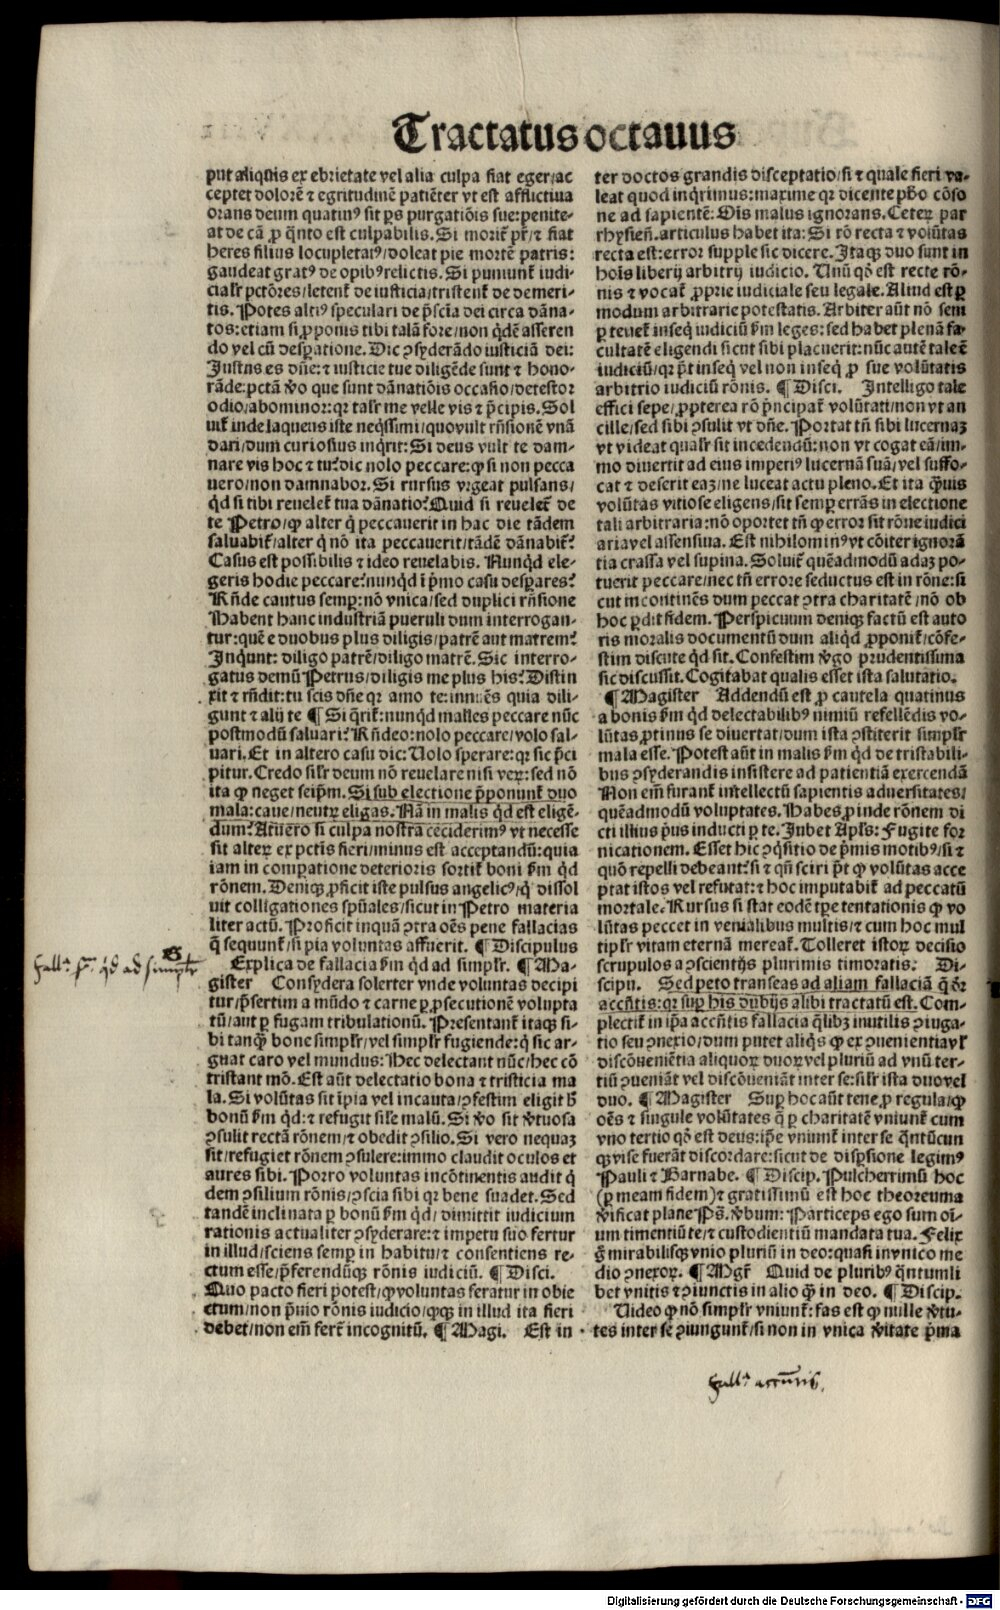 Tractatus octauus
put aliquis ex ebrietate vel alia culpa fiat eger/ac
ceptet dolorē ⁊ egritudinē patiēter vt est afflictiua
orans deum quatinꝰ sit ps purgatiōis sue: penite-
at de cā ꝓ qͣnto est culpabilis. Si morit̄ pr̄/⁊ fiat
heres filius locupletatꝰ/doleat pie mortē patris:
gaudeat gratꝰ de opibꝰ relictis. Si puniunt̄ iudi-
cialr pctōres/letent̄ de iusticia/tristent̄ de demeri-
tis. Potes altiꝰ speculari de p̄scīa dei circa dāna-
tos: etiam si ꝓponis tibi talā fore/non qͥdē asseren
do vel cū despatione. Dic ꝯsyderādo iusticiā dei:
Iustus es dn̄e: ⁊ iusticie tue diligēde sunt ⁊ hono-
rāde: pctā v̓o que sunt dānatiōis occasio/detestor
odio/abominor: qꝛ talr me velle vis ⁊ p̄cipis. Sol
uit̄ inde laqueus iste neqͥssimi/quo vult rn̄sionē vnā
dari/dum curiosius inqͥrit: Si deus vult te dam-
nare vis hoc ⁊ tu? dic nolo peccare: ꝙ si non pecca
uero/non damnabor. Si rursus vrgeat pulsans/
qͥd si tibi reuelet̄ tua dānatio? Quid si reuelet̄ de
te Petro/ꝙ alter qͥ peccauerit in hac die tādem
saluabit̄/alter qͥ nō ita peccauerit/tādē dānabit̄?
Casus est possibilis ⁊ ideo reuelabis. Nunqͥd ele-
geris hodie peccare? nunqͥd ī pͥmo casu despares?
Rn̄de cautus semp: nō vnica/sed duplici rn̄sione
Habent hanc industriā pueruli dum interrogan-
tur: quē e duobus plus diligis/patrē aut matrem?
Inqͥunt: diligo patrē/diligo matrē. Sic interro-
gatus demū Petrus/diligis me plus his? Distin
xit ⁊ rn̄dit: tu scis dn̄e qꝛ amo te: innuēs quia dili-
gunt ⁊ alij te ¶ Si qͥrit̄: nunqͥd malles peccare nūc
postmodū saluari? Rn̄deo: nolo peccare/volo sal-
uari. Et in altero casu dic: Uolo sperare: qꝛ sic p̄ci
pitur. Credo silr deum nō reuelare nisi veꝝ: sed nō
ita ꝙ neget seipm. Si sub electione p̄ponunt̄ duo
mala: caue/neutꝝ eligas. Nā in malis qͥd est eligē-
dum? At vero si culpa nostra ceciderimꝰ vt necesse
sit alteꝝ ex pctis fieri/minus est acceptandū: quia
iam in compatione deterioris sortit̄ boni s̄m qͥd
rōnem. Deniqꝫ ꝓficit iste pulsus angelicꝰ/qͥ dissol
uit colligationes spūales/sicut in Petro materia
liter actū. Proficit inquā ꝯtra oēs pene fallacias
q̄ sequunt̄/si pia voluntas affuerit. ¶ Discipulus
Explica de fallacia s̄m qͥd ad simplr. ¶ Ma-
gister Consydera solerter vnde voluntas decipi
tur/p̄sertim a mūdo ⁊ carne ꝑ ꝓsecutionē volupta
tū/aut ꝑ fugam tribulationū. Presentant̄ itaqꝫ si-
bi tanqͣ bone simplr/vel simplr fugiende: qͥ sic ar-
guat caro vel mundus: Hec delectant nūc/hec cō
tristant mō. Est aūt delectatio bona ⁊ tristicia ma
la. Si volūtas sit ipia vel incauta/ꝯfestim eligit h̓
bonū s̄m qͥd: ⁊ refugit sil̓e malū. Si v̓o sit v̓tuosa
ꝯsulit rectā rōnem/⁊ obedit ꝯsilio. Si vero nequaꝫ
sit/refugiet rōnem ꝯsulere: immo claudit oculos et
aures sibi. Porro voluntas incōtinentis audit qͥ
dem ꝯsilium rōnis/ꝯscia sibi qꝛ bene suadet. Sed
tandē inclinata ꝑ bonū s̄m qͥd/dimittit iudicium
rationis actualiter ꝯsyderare: ⁊ impetu suo fertur
in illud/sciens semp in habitu/⁊ consentiens re-
ctum esse/p̄ferendūqꝫ rōnis iudiciū. ¶ Disci.
Quo pacto fieri p̄otest/ꝙ voluntas feratur in obie
ctum/non p̄uio rōnis iudicio/qꝫqꝫ in illud ita fieri
debet/non em̄ fert̄ incognitū. ¶ Magi. Est in-
ter doctos grandis disceptatio/si ⁊ quale fieri va-
leat quod inqͥrimus: maxime qꝛ dicente pho cōso
ne ad sapientē: Ois malus ignorans. Ceteꝝ par
rhysien̄. articulus habet ita: Si rō recta ⁊ volūtas
recta est: error supple sic dicere. Itaqꝫ duo sunt in
hoīs liberij arbitrij iudicio. Unū qd̓ est recte rō-
nis ⁊ vocat̄ ꝓprie iudiciale seu legale. Aliud est ꝑ
modum arbitrarie potestatis. Arbiter aūt nō sem
ꝑ tenet̄ inseqͥ iudiciū s̄m leges: sed habet plenā fa-
cultatē eligendi sicut sibi placuerit: nūc autē tale ē
iudiciū/qꝛ p̄t inseqͥ vel non inseqͥ ꝓ sue volūtatis
arbitrio iudiciū rōnis. ¶ Disci. Intelligo tale
effici sepe/ꝓpterea rō pͥncipat̄ volūtati/non vt an
cille/sed sibi ꝯsulit vt dn̄e. Portat tn̄ sibi lucernaꝫ
vt videat qualr sit incedendū: non vt cogat eā/im-
mo diuertit ad eius imperiꝰ lucernā suā/vel suffo-
cat ⁊ deserit eaꝫ/ne luceat actu pleno. Et ita qͣuis
volūtas vitiose eligens/sit semp errās in electione
tali arbitraria: nō oportet tn̄ ꝙ error sit rōne iudici
aria vel assensiua. Est nihilominꝰ vt cōiter ignorā
tia crassa vel supina. Soluit̄ quēadmodū adaꝫ po-
tuerit peccare/nec tn̄ errore seductus est in rōne: si
cut incontinēs dum peccat ꝯtra charitatē/nō ob
hoc ꝑdit fidem. Perspicuum deniqꝫ factū est auto
ris moralis documentū dum aliqͥd ꝓponit̄/cōfe-
stim discute qͥd sit. Confestim v̓go prudentissima
sic discussit. Cogitabat qualis esset ista salutatio.
¶ Magister Addendū est ꝓ cautela quatinus
a bonis s̄m qͥd delectabilibꝰ nimiū refellēdis vo-
lūtas ꝓtinus se diuertat/dum ista ꝯstiterit simplr
mala esse. Potest aūt in malis s̄m qͥd de tristabili-
bus ꝯsyderandis insistere ad patientiā exercendā
Non em̄ furant̄ intellectū sapientis aduersitates/
quēadmodū voluptates. Habes ꝓinde rōnem di
cti illius pͥus inducti ꝑ te. Iubet Apls: Fugite for
nicationem. Esset hic ꝯqͥsitio de pͥmis motibꝰ/si ⁊
quō repelli debeant: si ⁊ qn̄ sciri p̄t ꝙ volūtas acce
ptat istos vel refutat: ⁊ hoc imputabit̄ ad peccatū
mortale. Rursus si stat eodē tpe tentationis ꝙ vo
lūtas peccet in venialibus multis/⁊ cum hoc mul
tiplr vitam eternā mereat̄. Tolleret istoꝝ decisio
scrupulos a ꝯscientijs plurimis timoratis. Di-
scipu. Sed peto transeas ad aliam fallaciā q̄ d̓r
accn̄tis: qꝛ sup his dubijs alibi tractatū est. Com-
plectit̄ in ipa accn̄tis fallacia qͥlibꝫ inutilis ꝯiuga-
tio seu ꝯnexio/dum putet aliqͥs ꝙ ex ꝯuenientia vl̓
discōuenientia aliquoꝝ duoꝝ vel pluriū ad vnū ter-
tiū ꝯueniāt vel discōueniāt inter se: silr ista duo vel
duo. ¶ Magister Sup hoc aūt tene ꝓ regula/ꝙ
oēs ⁊ singule volūtates q̄ ꝑ charitatē vniunt̄ cum
vno tertio qd̓ est deus: ipe vniunt̄ inter se qͣntūcun
qꝫ vise fuerāt discordare: sicut de dispsione legimꝰ
Pauli ⁊ Barnabe. ¶ Discip. Pulcherrimū hoc
(ꝑ meam fidem)⁊ gratissimū est hoc theoreuma
v̓ificat plane Ps. v̓bum: Particeps ego sum oīm
um timentiū te/⁊ custodientiū mandata tua. Felix
g̊ mirabilisqꝫ vnio pluriū in deo: quasi in vnico me
dio ꝯnexoꝝ. ¶ Mgr̄ Quid de pluribꝰ qͣntumli
bet vnitis ⁊ ꝯiunctis in alio qͣ in deo. ¶ Discip.
Uideo ꝙ nō simplr vniunt̄: fas est ꝙ nulle v̓tu-
tes inter se ꝯiungunt̄/si non in vnica v̓itate pͥma
G
fall.ᵃ s.ᵐ qd ad simplr
fall.ᵃ accn̄tis.
Digitalisierung gefördert durch die Deutsche Forschungsgemeinschaft - DFG